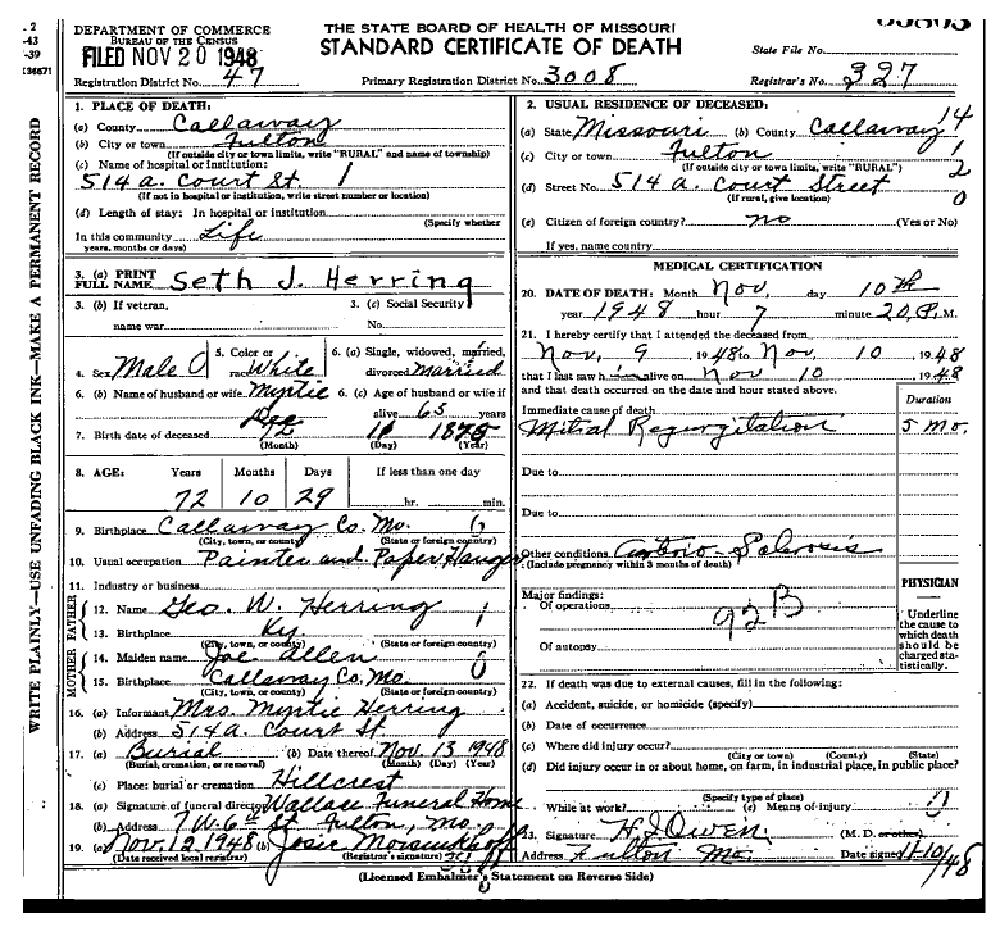 . 2
-43
-39
I36671
WRITE PLAINLY—USE UNFADING BLACK INK—MAKE A PERMANENT RECORD
DEPARTMENT OF COMMERCE
BUREAU OF THE CENSUS
FILED NOV 20 1948
Registration District No. 47
THE STATE BOARD OF HEALTH OF MISSOURI
STANDARD CERTIFICATE OF DEATH
Primary Registration District No. 3008
State File No.
Registrar's No. 327
1. PLACE OF DEATH:
(a) County Callaway
(b) City or town Fulton
(If outside city or town limits, write "RURAL" and name of township)
(c) Name of hospital or institution:
514 a. Court St. 1
(If not in hospital or institution, write street number or location)
(d) Length of stay: In hospital or institution
(Specify whether
In this community Life
years, months or days)
2. USUAL RESIDENCE OF DECEASED:
(a) State Missouri (b) County Callaway 14
(c) City or town Fulton 1
(If outside city or town limits, write "RURAL") 2
(d) Street No. 514 a. Court Street 0
(If rural, give location)
(e) Citizen of foreign country? no (Yes or No)
If yes, name country
3. (a) PRINT FULL NAME Seth J. Herring
3. (b) If veteran, name war
3. (c) Social Security No.
4. Sex Male
5. Color or race White
6. (a) Single, widowed, married, divorced married
6. (b) Name of husband or wife Myrtie
6. (c) Age of husband or wife if alive 65 years
7. Birth date of deceased Dec 12 11 1875
(Month) (Day) (Year)
8. AGE: Years Months Days If less than one day
72 10 29 hr. min.
9. Birthplace Callaway Co. Mo.
(City, town, or county) (State or foreign country)
10. Usual occupation Painter and Paper Hanger
11. Industry or business
FATHER
12. Name Geo. W. Herring
13. Birthplace Ky
(City, town, or county) (State or foreign country)
MOTHER
14. Maiden name Joe Allen
15. Birthplace Callaway Co. Mo.
(City, town, or county) (State or foreign country)
16. (a) Informant Mrs. Myrtie Herring
(b) Address 514 a. Court St.
17. (a) Burial (b) Date thereof Nov. 13 1948
(Burial, cremation, or removal) (Month) (Day) (Year)
(c) Place: burial or cremation Hillcrest
18. (a) Signature of funeral director Wallace Funeral Home
(b) Address 7 W. 6th St. Fulton, Mo.
19. (a) Nov. 12, 1948 (b) Josie
(Date received local registrar) (Registrar's signature)
MEDICAL CERTIFICATION
20. DATE OF DEATH: Month Nov. day 10th
year 1948 hour 7 minute 20 P. M.
21. I hereby certify that I attended the deceased from
Nov. 9 1948 to Nov. 10 1948
that I last saw him alive on Nov 10 1948
and that death occurred on the date and hour stated above.
Duration
Immediate cause of death
Mitral Regurgitation 5 mo.
Due to
Due to
Other conditions
(Include pregnancy within 3 months of death)
Major findings:
Of operations
92B
Of autopsy
PHYSICIAN
Underline the cause to which death should be charged statistically.
22. If death was due to external causes, fill in the following:
(a) Accident, suicide, or homicide (specify)
(b) Date of occurrence
(c) Where did injury occur?
(City or town) (County) (State)
(d) Did injury occur in or about home, on farm, in industrial place, in public place?
(Specify type of place)
While at work? (e) Means of injury
23. Signature H. I. Owen. (M. D. or other)
Address Fulton Mo. Date signed 11-10/48
(Licensed Embalmer's Statement on Reverse Side)